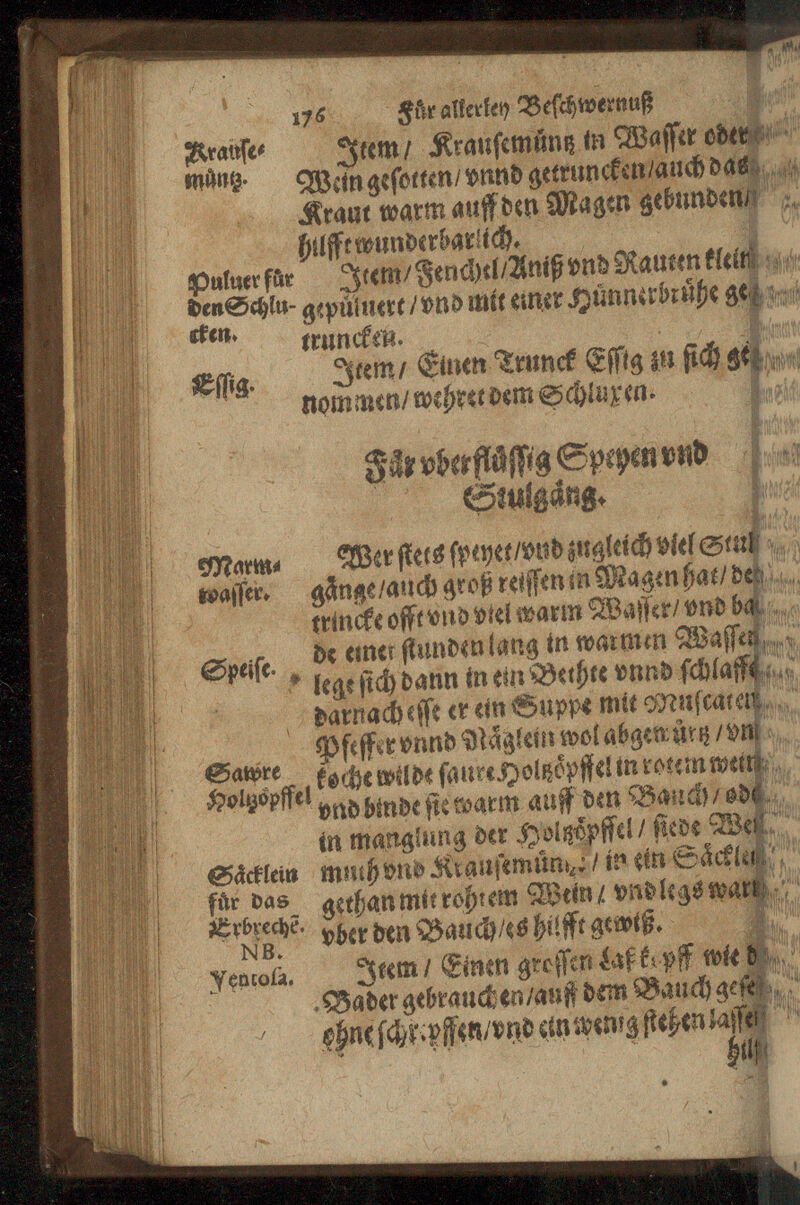 176 Fuͤr allerley Beſchwernuß
Krauſe⸗ Item / Krauſemuͤntz in Waſſer oder
muͤntz. Wein geſotten / vnnd getruncken / auch das
Kraut warm auff den Magen gebunden /
hilfft wunderbarlich.
Puluer fuͤr Item / Fenchel / Aniß vnd Rauten klein
den Schlu- gepuͤluert / vnd mit einer Huͤnnerbruͤhe ge⸗
cken. truncken.
Eſſig. Item / Einen Trunck Eſſig zu ſich ge⸗
nommen / wehret dem Schluxen.
Fuͤr vberfluͤſſig Speyen vnd
Stulgaͤng.
Warm⸗ Wer ſtets ſpeyet / vnd zugleich viel Stul
waſſer. gaͤnge / auch groß reiſſen in Magen hat / der
trincke offt vnd viel warm Waſſer / vnd ba
de einer ſtunden lang in warmen Waſſer
Speiſe. lege ſich dann in ein Bethte vnnd ſchlaffe
darnach eſſe er ein Suppe mit Muſcaten
Pfeffer vnnd Naͤglein wol abgewuͤrtz / vn
Sawre koche wilde ſaure Holtzoͤpffel in rotem wein
Holtzoͤpffel vnd binde ſie warm auff den Bauch / ode
in manglung der Holtzoͤpffel / ſiede Wer
Saͤcklein muth vnd Krauſemuͤntz / in ein Saͤcklein
fuͤr das gethan mit rohtem Wein / vnd legs warm
Erbrechẽ. vber den Bauch / es hilfft gewiß.
NB. Item / Einen groſſen Laßkopff wie d
Ventoſa. Bader gebrauchen / auff dem Bauch geſe
ohne ſchrepffen / vnd ein wenig ſtehen laſſe
hilf